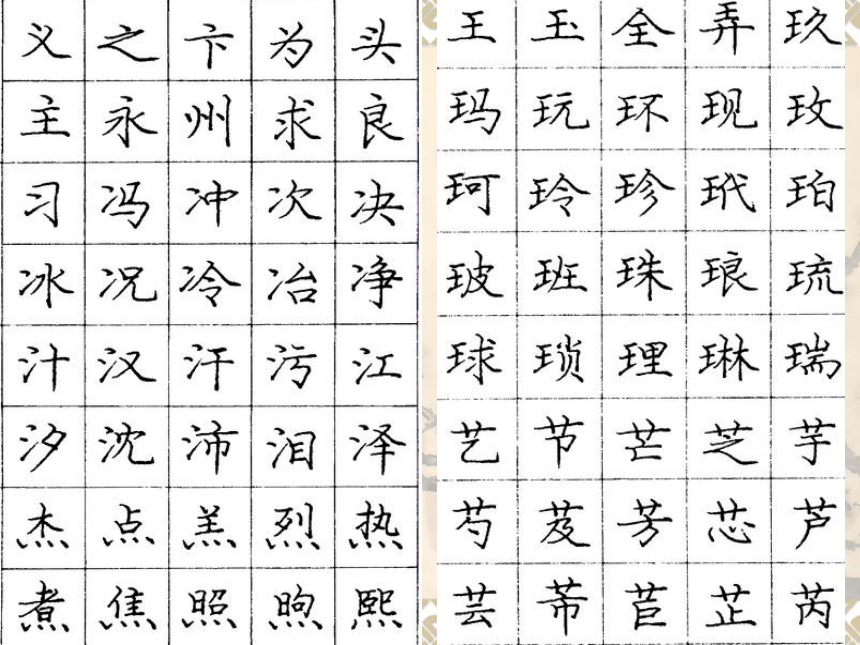 义之卞为头
主永州求良
习冯冲次决
冰况冷冶净
汁汉汗污江
汐沈沛泪泽
杰点羔烈热
煮焦照煦熙
王玉全弄玖
玛玩环现玫
珂玲珍玳珀
玻班珠琅琉
球琐理琳瑞
艺节芒芝芋
芍芨芳芯芦
芸芾苣芷芮